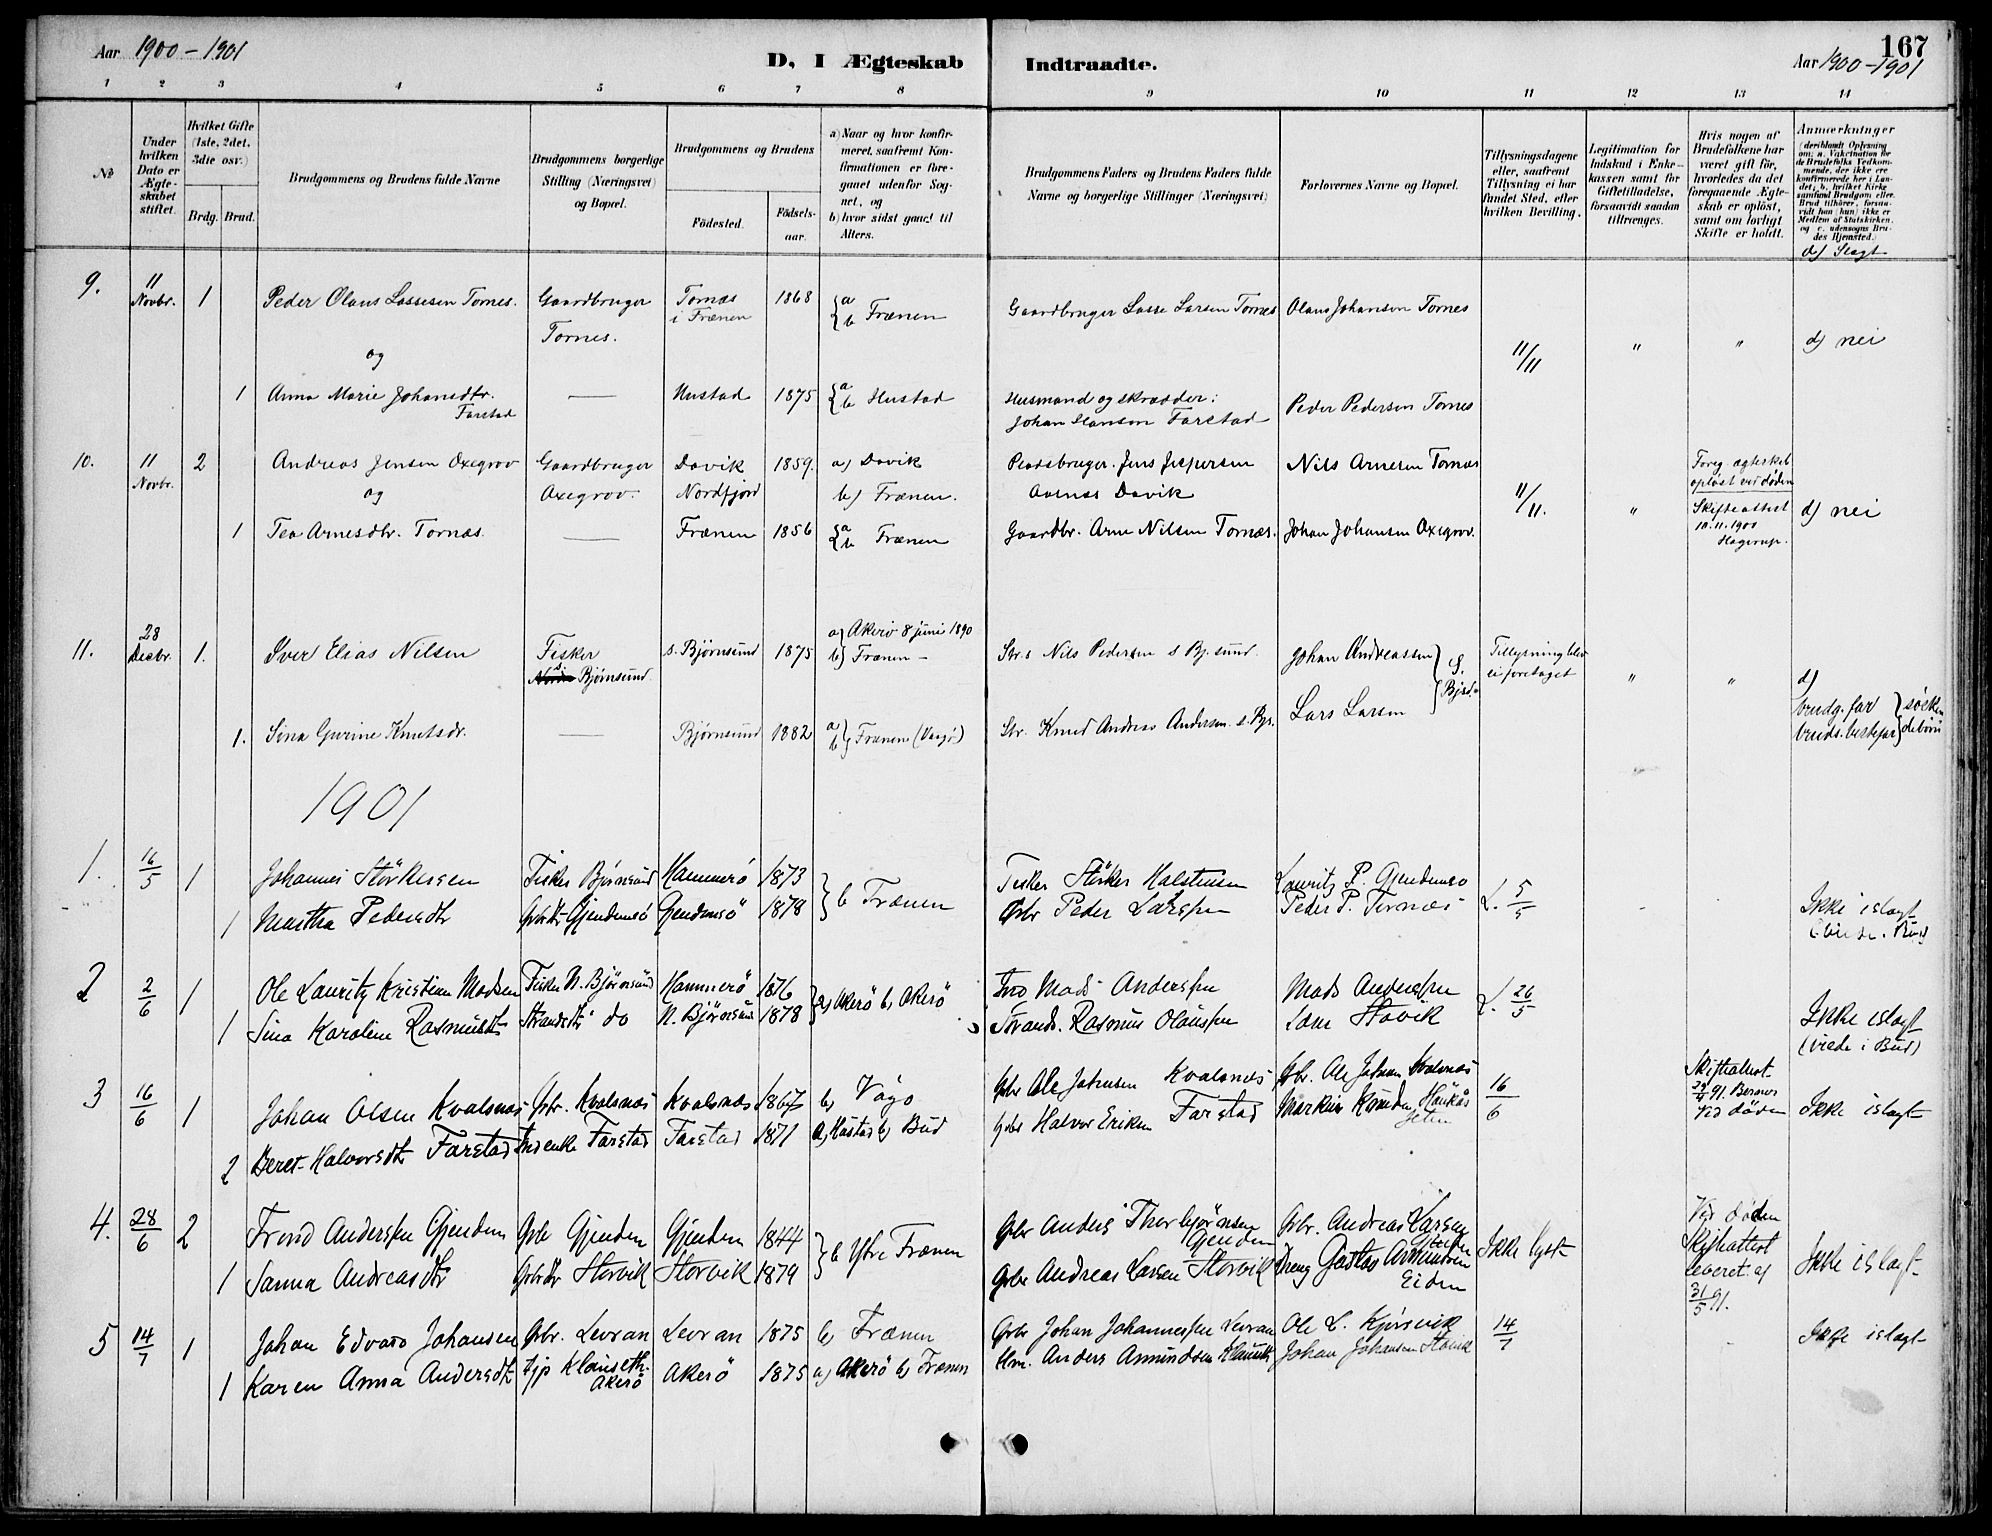 Aar 1900 – 1901
D. I Ægteskab
Indtraadte.
167
Aar 1900 – 1901
1 2 3 4 5 6 7 8 9 10 11 12 13 14
No
Under
hvilken
Dato er
Ægte-
skabet
stiftet.
Hvilket Gifte
(1ste, 2det,
3die osv.)
Brdg. Brud.
Brudgommens og Brudens fulde Navne
Brudgommens borgerlige
Stilling (Næringsvei)
og Bopæl.
Brudgommens og Brudens
Fødested.
Fødsels-
aar.
a) Naar og hvor konfir-
meret, saafremt Kon-
firmationen er fore-
gaaet udenfor Sog-
net, og
b) hvor sidst gaaet til
Alters.
Brudgommens Faders og Brudens Faders fulde
Navne og borgerlige Stillinger (Næringsvei)
Forlovernes Navne og Bopæl.
Tillysningsdagene
eller, saafremt
Tillysning ei har
fundet Sted, efter
hvilken Bevilling.
Legitimation for
Indskud i Enke-
kassen samt for
Giftetilladelse,
forsaavidt saadan
tiltrænges.
Hvis nogen af
Brudefolkene har
været gift før,
hvorledes da det
foregaaende Ægte-
skab er opløst,
samt om lovligt
Skifte er holdt.
Anmærkninger
(deriblandt Oplysning
om: a. Vakcination for
de Brudefolks Vedkom-
mende, der ikke ere
konfirmerede her i Lan-
det; b. hvilket Kirke
samfund Brudgom eller
Brud tilhører, forsaa-
vidt han (hun) ikke er
Medlem af Statskirken,
og c. udensogns Bru-
des Hjemsted.)
d) Slægt
9. 11 Novbr. 1 Peder Olaus Lassesen Tornes. Gaardbruger Tornes. Tornæs i Frænen 1868 a b Frænen Gaardbruger Lasse Larsen Tornes Olaus Johansen Tornes
og 11/11 " " d) nei
1 Anna Marie Johansdtr. Farstad — Hustad 1875 a b Hustad Husmand og skrædder: Johan Hansen Farstad Peder Pedersen Tornes
10. 11 Novbr. 2 Andreas Jensen Oxegrov Gaardbruger Oxegrov. Davik Nordfjord 1859. a) Davik b) Frænen. Pladsbruger. Jens Jespersen Aarnes Davik Nils Arnesen Tornæs
og 11/11. " Foreg ægteskab opløst ved døden Skifteattest 10.11.1900 Hagerup. d) nei
1 Tea Arnesdtr. Tornæs. — Frænen 1856 a b Frænen Gaardbr. Arne Nilsen Tornæs. Johan Johansen Oxegrov.
11. 28 Decbr. 1. Iver Elias Nilsen Fisker Bjørnsund s. Bjørnsund 1875 a) Akerø 8 juni 1890 b) Frænen – Str. Nils Pedersen s Bj.sund. Johan Andreassen Tillysning blev ei foretaget " "
1. Sina Gurine Knutsdr. — Bjørnsund 1882 a b Frænen (Vaagø) Str. Knud Andreas Andersen s. Bjs. Lars Larsen S. Bjsd. d) brudg. far bruds. bestefar søsken debørn
1901
1. 16/5 1 Johannes Störkersen Fisker Bjørnsund Hammerö 1873 b Frænen Fisker Störker Halstensen Lauritz P. Gjendemsö L. 5/5 Ikke islagt
1 Martha Pedersdtr Gbrdtr Gjendemsö Gjendemsö 1878 Gbr Peder Larssen Peder P. Tornæs
2 2/6 1 Ole Lauritz Kristian Madsen Fisker N. Bjørnsund Hammerö 1876 a) Akerö b) Akerö Mads Anderssen Mads Anderssen L. 26/5
1 Sina Karoline Rasmusdtr Strandsdtr do N. Bjørnsund 1878 Strands. Rasmus Olaussen Stavik Ikke islagt (viede i Bud)
3 16/6 1 Johan Olsen Kvalsnæs Gbr. Kvalsnæs Kvalsnæs 1867 b) Vågø Gbr Ole Johnsen Kvalsnæs Gbr. Ole Johnsen Kvalsnæs 16/6 Skifteattest Ved döden Ikke islagt
2 Beret Halvorsdtr Farstad Indenke Farstad Farstad 1871 a) Hustad b) Bud Gbr Halvor Eriksen Farstad
4. 28/6 2 Trond Anderssen Gjendem Gbr Gjendem Gjendem 1844 b Ytre Frænen Gbr Anders Thorbjörnsen Gjendem Gbr. Andreas Larsen Ikke lyst Ved döden Skifteattest leveret af 31/5 91. Ikke islagt
1 Sanna Andreasdtr Gbrdtr Storvik Storvik 1879 Gbr Andreas Larsen Storvik Dreng Gustav Amundsen Eiden
5 14/7 1 Johan Edvard Johansen Gbr. Levran Levran 1875 b) Frænen Gbr Johan Johannessen Levran Ole L. Kjörsvik 14/7 Ikke islagt
1 Karen Anna Andersdtr tjp Klauseth. Akerö Akerö 1875 a) Akerö b) Frænen Hm. Anders Amundsen Klauseth Johan Johansen Stavik